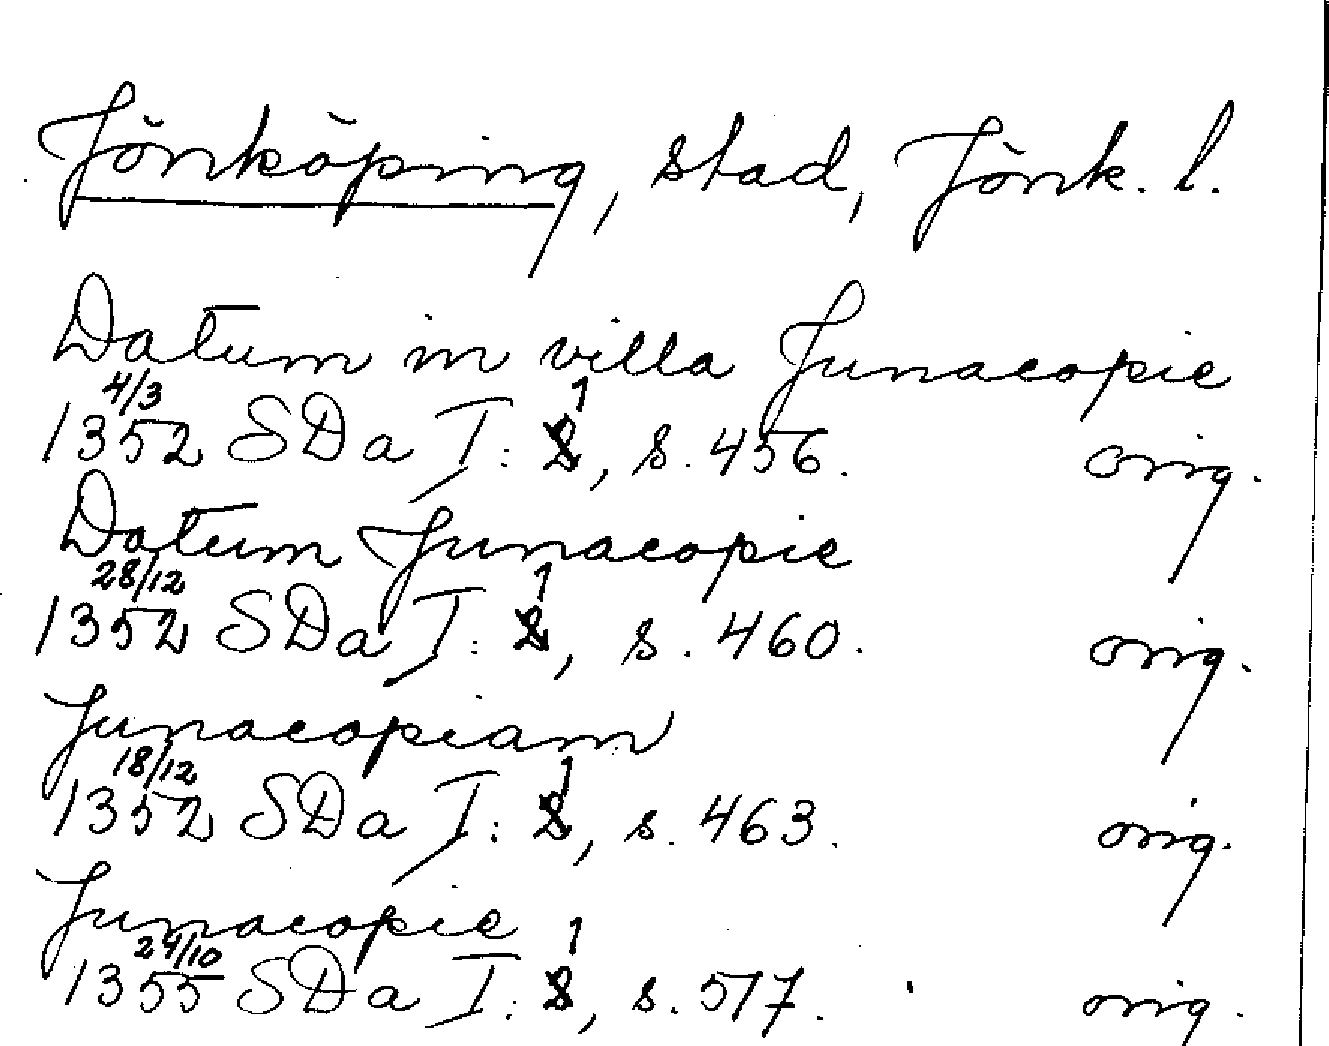 Jönköping, stad, Jönk. l.
Datum in villa Junacopie
4/3 1
1352 SDa I: 2, s. 456. orig.
Datum Junacopie
28/12 1
1352 SDa I: 2, s. 460. orig.
Junacopiam
18/12 1
1352 SDa I: 2, s. 463. orig.
Junacopie
24/10 1
1355 SDa I: 2, s. 517. orig.